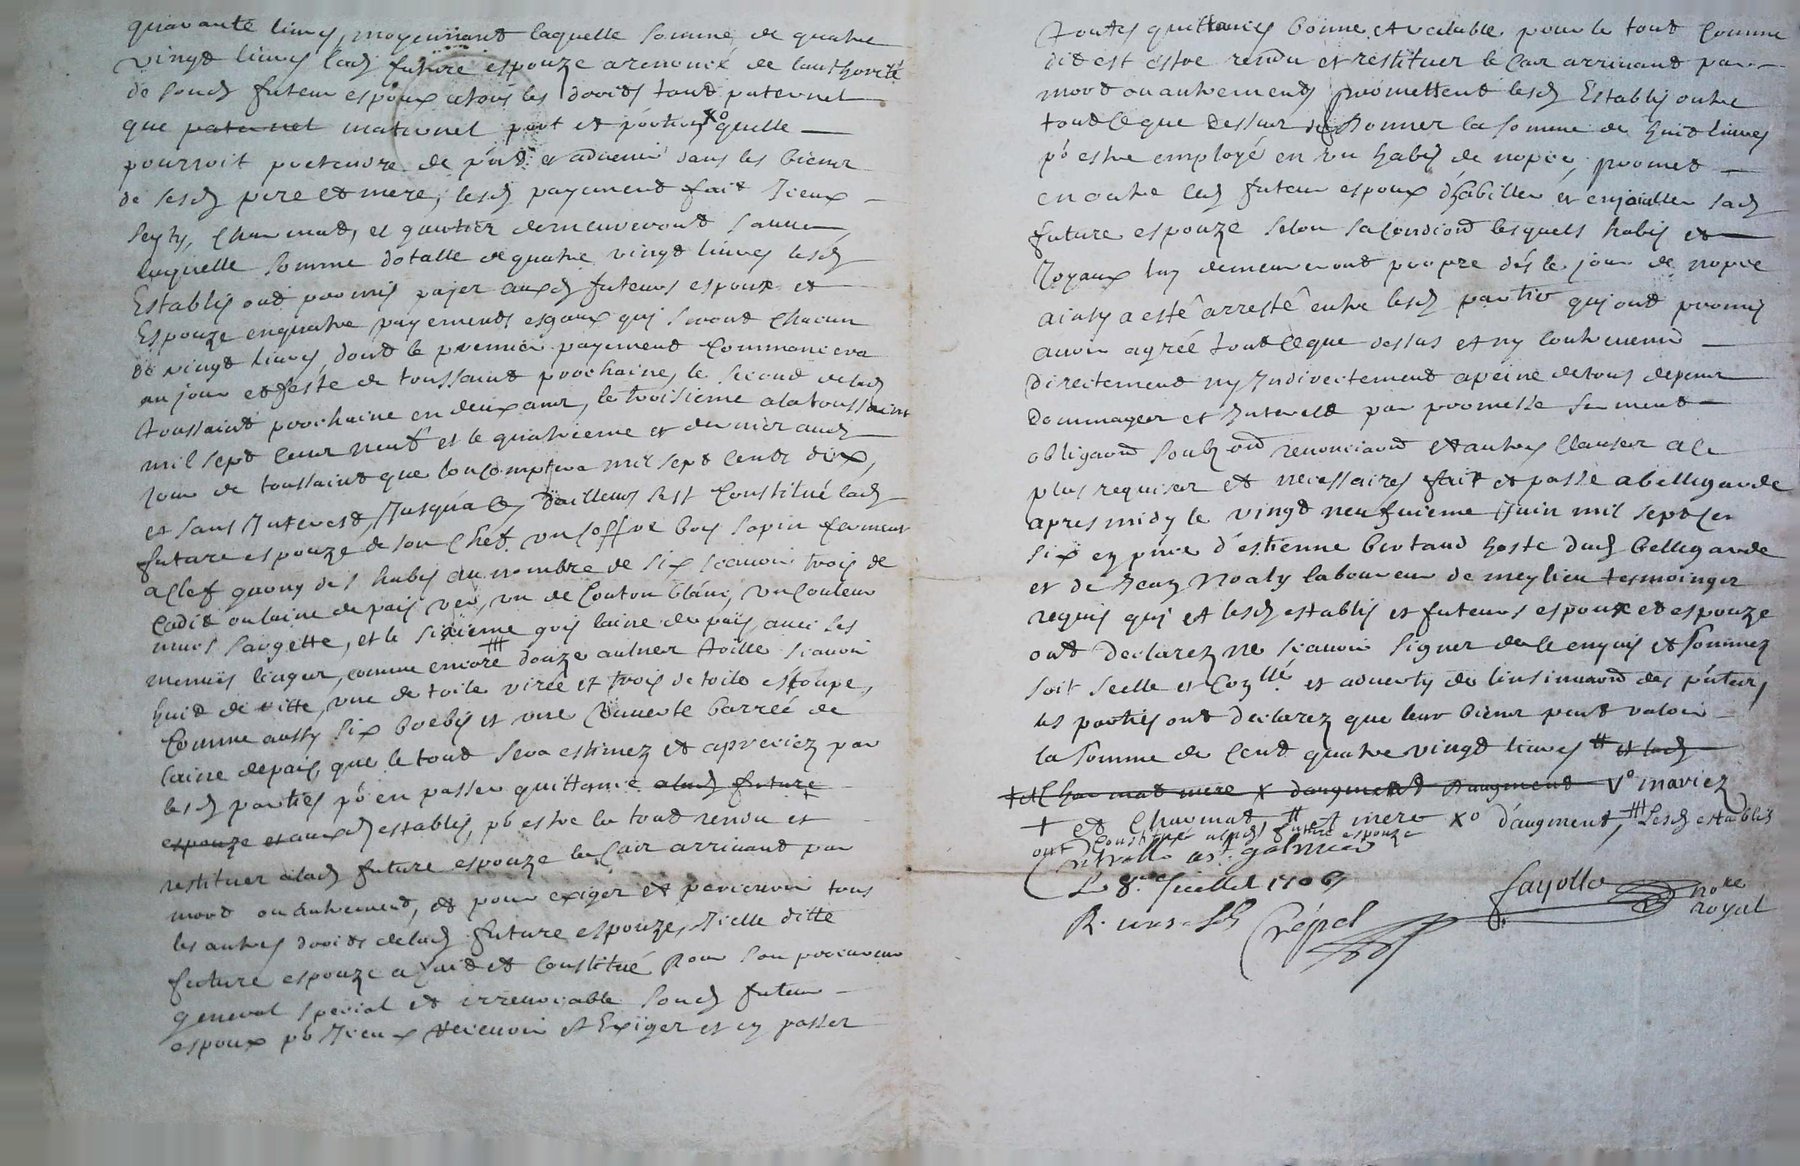 quarante livres, moyennant laquelle somme de quatre
vingt livres lad future espouze a renoncé de lauthorité
de soud futeur espoux a tous les droicts tant paternel
que paternel maternel part et portion xo quelle
pourroit pretendre de pnt et advenir dans les biens
de sesd pere et mere, lesd payement fait Iceux
Charmat, et gautier demeureront
laquelle somme dotalle de quatre vingt livres lesd
Establis ont promis payer auxd futeurs espoux et
Espouze en quatre payements esgaux qui seront chacun
de vingt livres dont le premier payement commancera
au jour et feste de toussaint prochaine, le second delad
toussaint prochaine en deux ans, le troisieme a la toussaint
mil sept cent neuf et le quatrieme et dernier aud
jour de toussaint que lon comptera mil sept cents dix,
et sans Interest Jusqua ce, dailleurs sest constitué lad
future espouze de son chef un coffre bois sapin fermant
a clef garny des habis au nombre de six scavoir trois de
cadis ou laine de pais un de couton blanc, un couleur
et le sixieme gris laine du pais, avec ses
menus linges, comme encore ### douze aulnes toille scavoir
huit de une de toile et trois de toile estoupe,
comme aussy six brebis et une couverte barrée de
laine depais, que le tout sera estimez et apreciez par
lesd parties po en passer quittance alad future
espouze et auxd establis, po estre le tout rendu et
restituer alad future espouze le cas arrivant par
mort ou autrement, et pour exiger et percevoir tous
les autres droicts delad future espouze, Icelle ditte
future espouze a fait et constitué pour son procureur
general special et irrevocable soud futeur
espoux po Iceux recevoir et Exiger et en passer
toutes quittances bonne et vallable pour le tout comme
dit est estre rendu et restituer le cas arrivant par
mort ou autrement promettent lesd Establis outre
tout ce que dessus donner la somme de huit livres
po estre employé en un habis de nopce, promet
en outre led futeur espoux dhabiller et enjouailler sad
future espouze selon sa condiond lesquels habis et
Joyaux luy demeureront propre dés le jour de nopce
ainsy a esté arresté entre lesd parties qui ont promis
avoir agréé tout ce que dessus et ny contrevenir
directement ny Indirectement a peine de tous depens
dommages et Interest par promesse serment
obligaond renonciaond et autres clauses a ce
plus requises et necessaires fait et passé a bellegarde
apres midy le vingt neufvieme Juin mil sept cen
six en pnce d'estienne bertaud hoste dud bellegarde
et de Jean laboureur de meylieu tesmoinger
requis qui et lesd establis et futeurs espoux et espouze
ont declarez ne scavoir signer de ce enquis et sommez
soit scelle et conllé et adverty de linsinuaond des
les parties ont declarez que leur biens peut valoir
la somme de cent quatre vingt livres # et lad
+ et Charmat mere x daugment Daugment Vo mariez
+ et Charmat, # et mere xo d'augment, ### lesd establis
ont constitué alad future espouze
Controllé a st galmier
Le 8e Juillet 1706
Fayolle nore
royal
R. Crépel